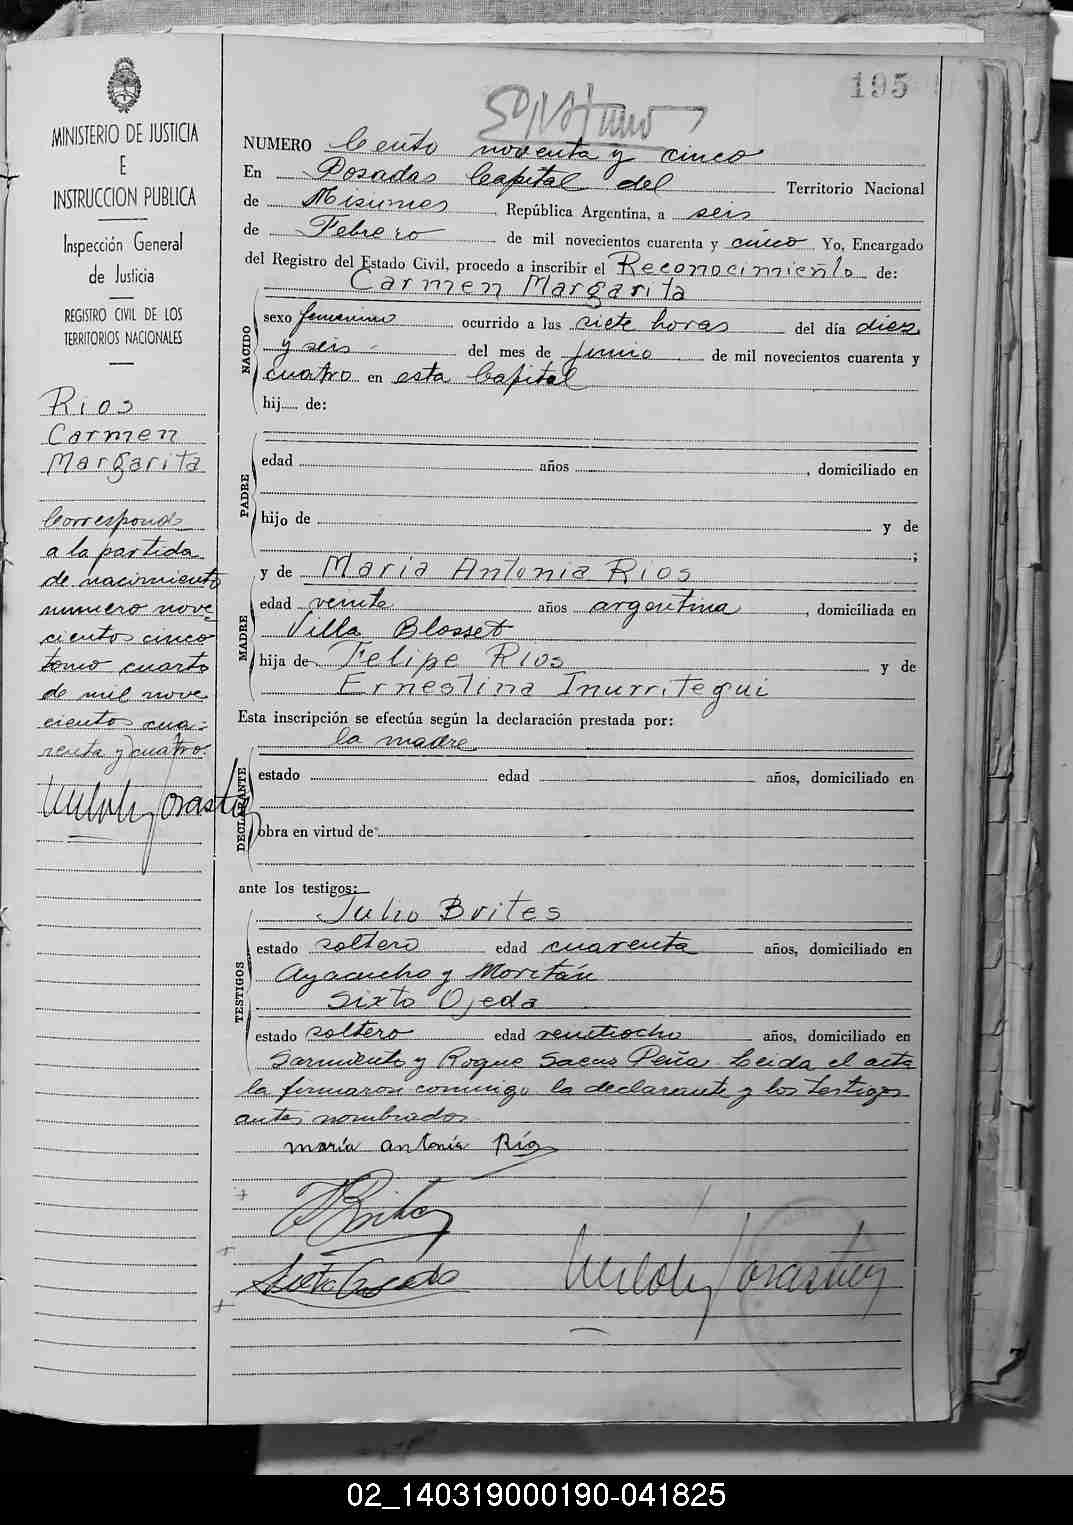 195
MINISTERIO DE JUSTICIA
E
INSTRUCCION PUBLICA
Inspección General
de Justicia
REGISTRO CIVIL DE LOS
TERRITORIOS NACIONALES
Rios
Carmen
Margarita
Corresponde
a la partida
de nacimiento
numero nove
cientos cinco
tomo cuarto
de mil nove
cientos cua-
renta y cuatro.
NUMERO Ciento noventa y cinco
En Posadas Capital del Territorio Nacional
de Misiones República Argentina, a seis
de Febrero de mil novecientos cuarenta y cinco Yo, Encargado
del Registro del Estado Civil, procedo a inscribir el Reconocimiento de:
Carmen Margarita
NACIDO
sexo femenino ocurrido a las siete horas del día diez
y seis del mes de junio de mil novecientos cuarenta y
cuatro en esta Capital
hij..... de:
PADRE
edad años , domiciliado en
hijo de y de
;
y de Maria Antonia Rios
MADRE
edad veinte años argentina , domiciliada en
Villa Blosset
hija de Felipe Rios y de
Ernestina Inurritegui
Esta inscripción se efectúa según la declaración prestada por:
la madre
DECLARANTE
estado edad años, domiciliado en
obra en virtud de
ante los testigos:
Julio Brites
TESTIGOS
estado soltero edad cuarenta años, domiciliado en
Ayacucho y Moritán
Sixto Ojeda
estado soltero edad veintiocho años, domiciliado en
Sarmiento y Roque Saenz Peña. Leida el acta
la firmaron conmigo la declarante y los testigos
antes nombrados
maría antonía Ríos
02_140319000190-041825